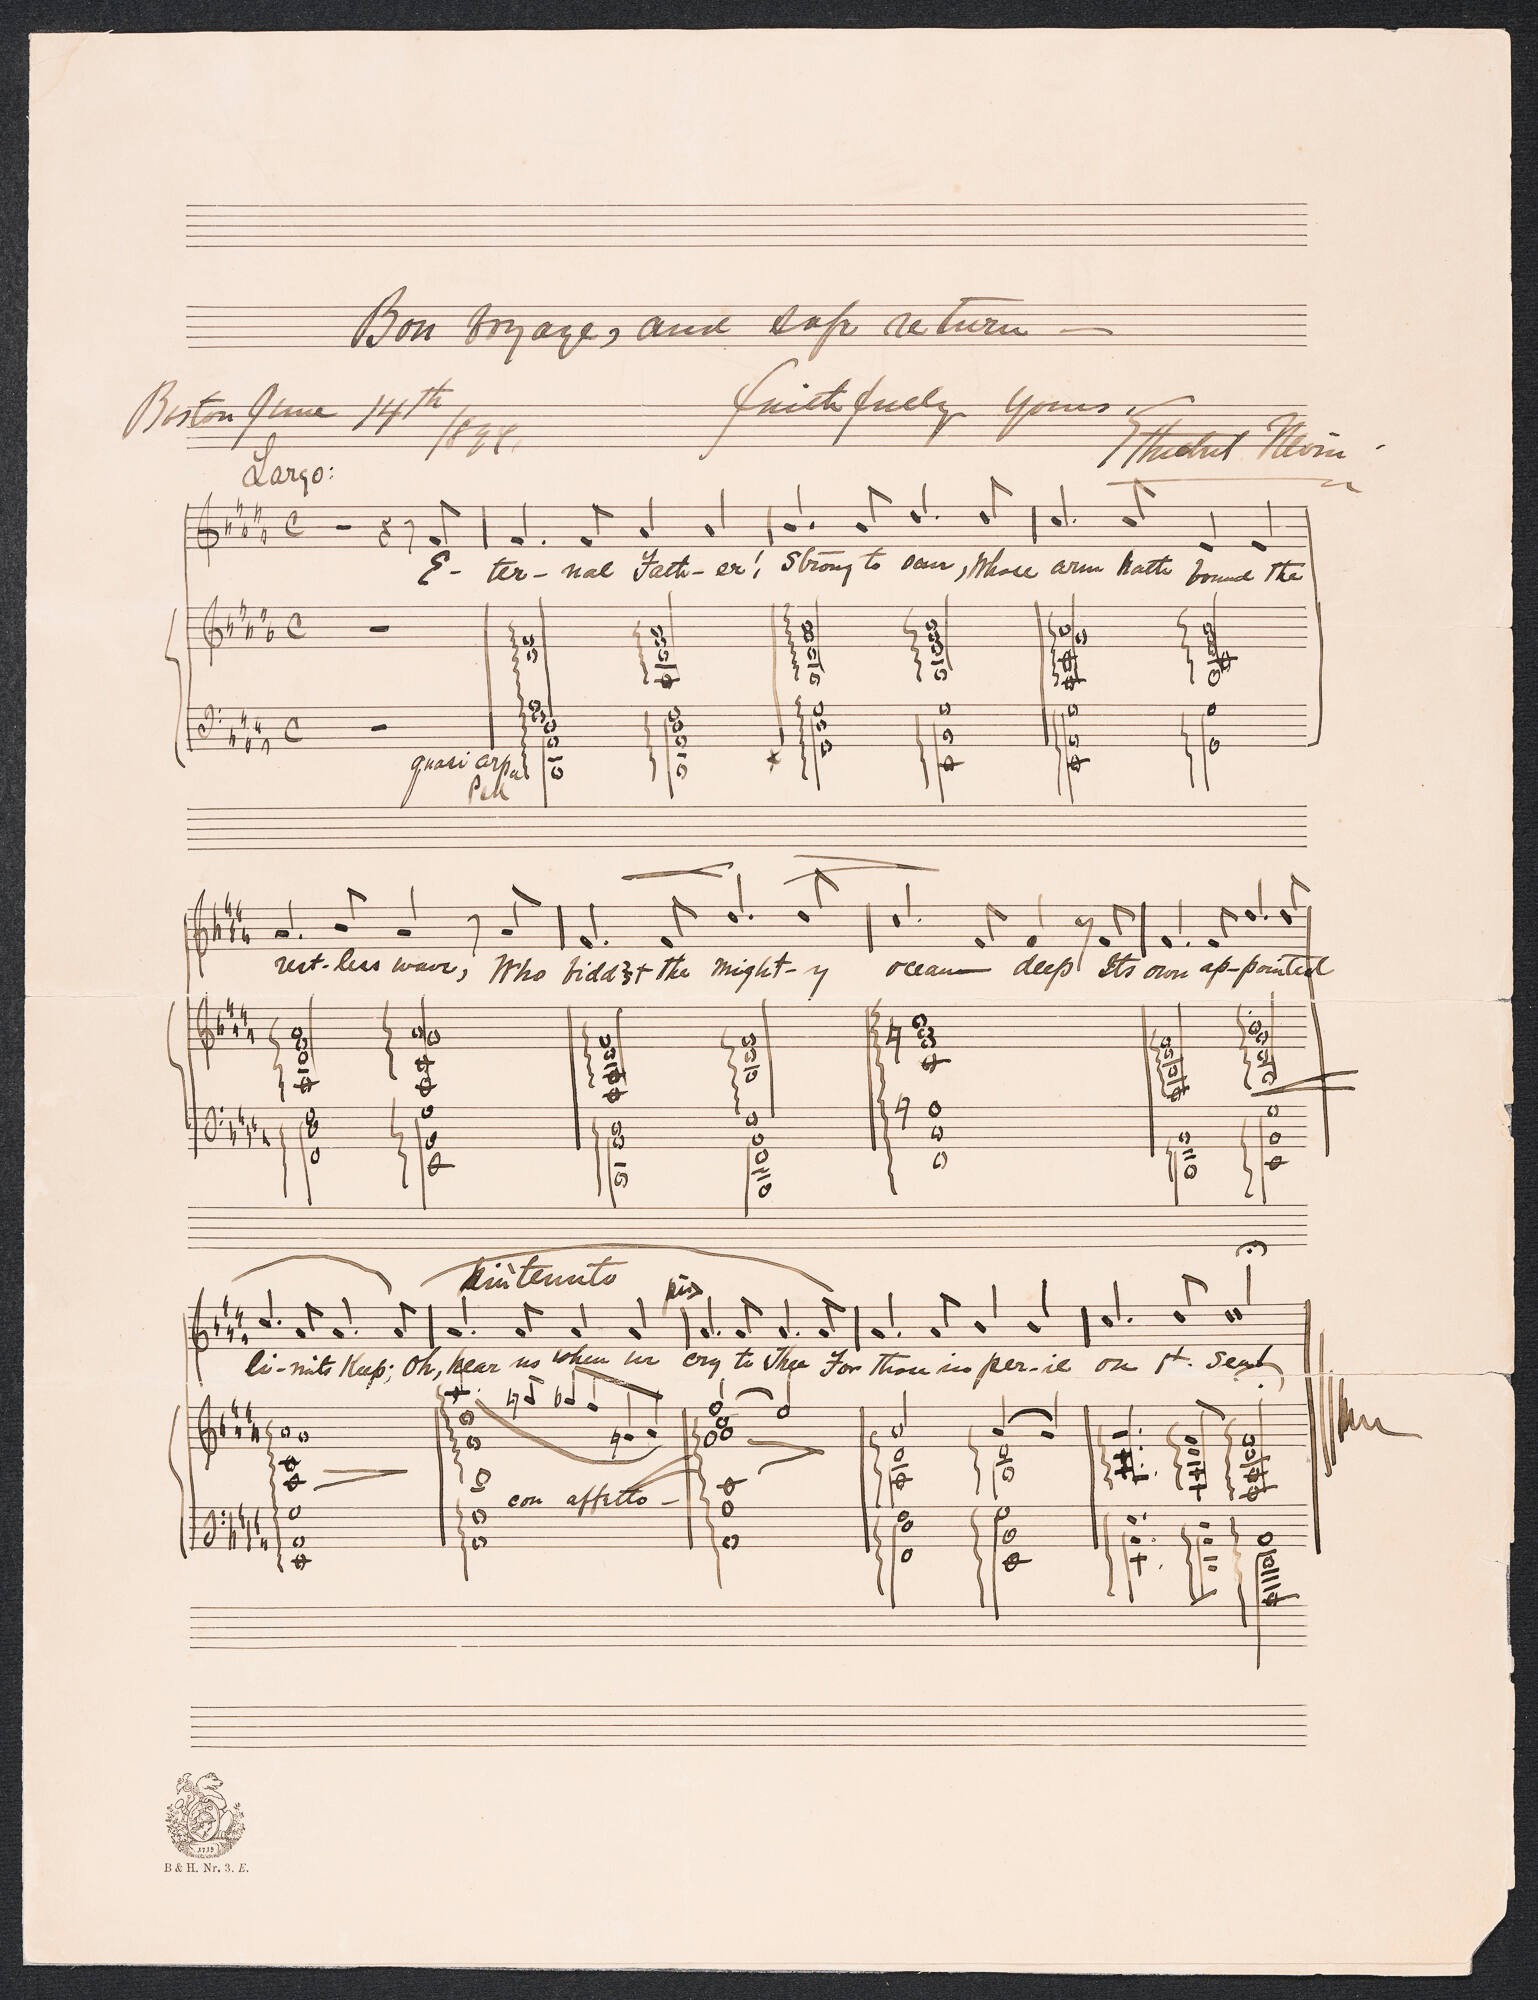 Bon Voyage, and safe return —
Boston June 14th
faithfully yours,
Ethelbert Nevin
Largo:
E - ter - nal Fath - er! Strong to save, Whose arm hath bound the
quasi arpa
Ped
rest - less wave, Who bidd'st the might - y ocean deep Its own ap - pointed
più tenuto
li - mits Keep; Oh, hear us when we cry to Thee For those in per - il on the sea!
con affetto —
1719
B & H. Nr. 3. E.